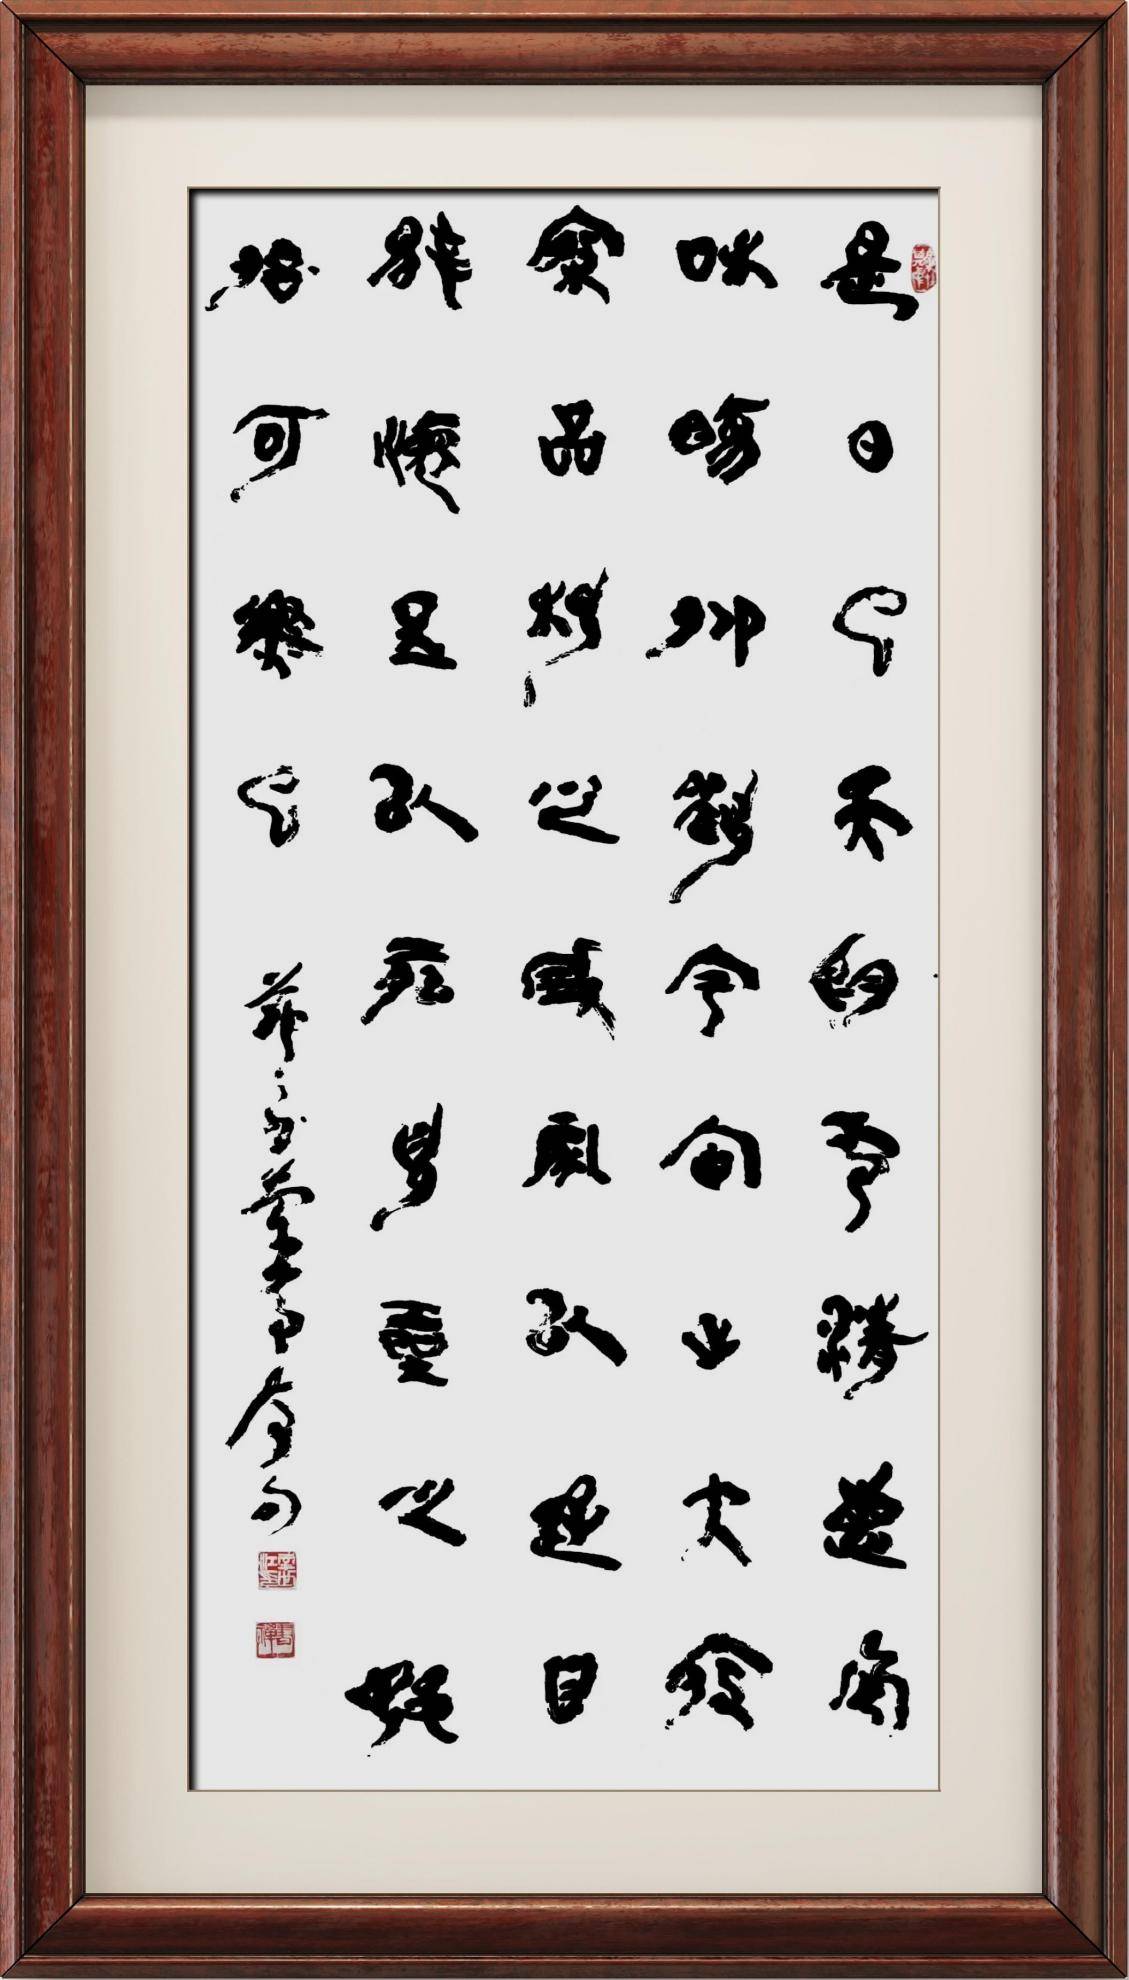 是日也天朗氣清惠風
和暢仰觀宇宙之大俯
察品類之盛所以遊目
騁懷足以極視聽之娛
信可樂也
蘭亭序句